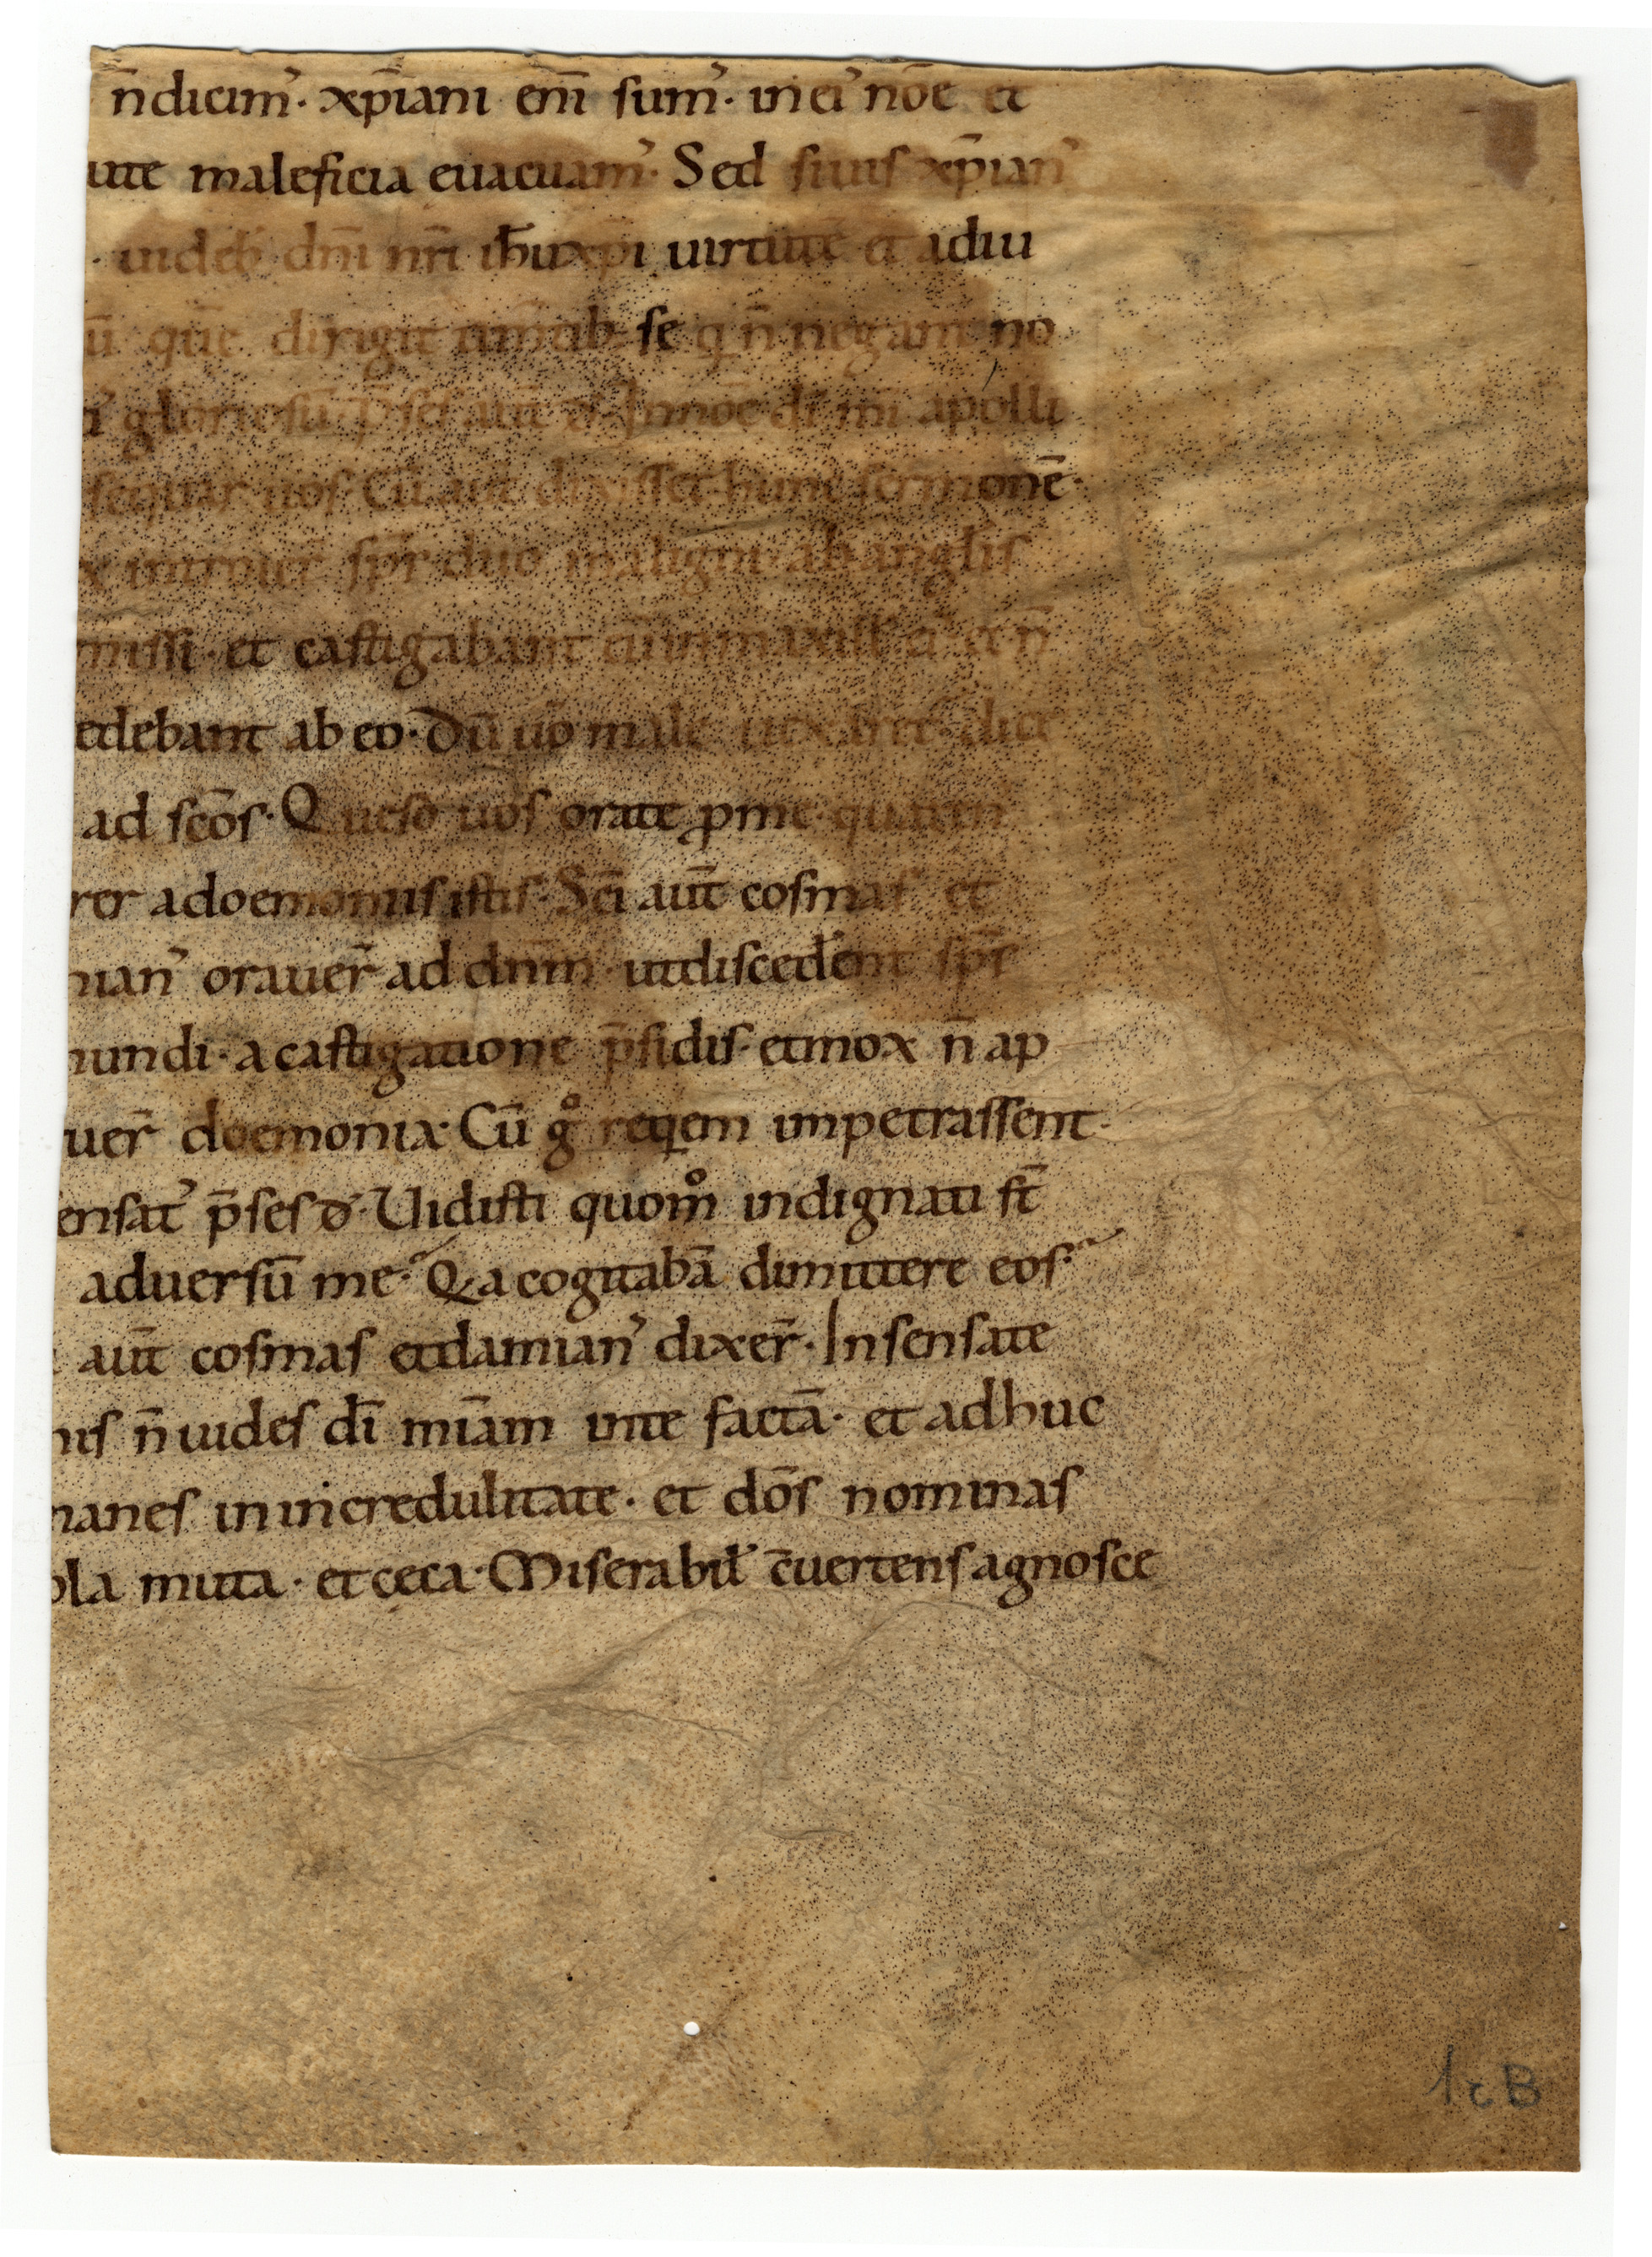 n̄ dicim᾽· xp̄iani em̄ sum᾽· in ei᾽ nōe et
ute maleficia euacuam᾽· Sed siuis xp̄ian᾽
· uideb dn̄i nr̄i ih̄u xp̄i uirtutē et adiu
ū quē dirigit se q n̄ negant no
gloriosū· p̄ses aūt In nōe dī mī apolli
sequar uos· Cū aūt dixisset hunc sermonē·
x spr̄ duo maligni ab anglis
missi· et castigabant n̄
edebant ab eo· Dū uo male uexaret᾽ dic̄
ad sc̄os· Queso uos orate ꝓ me quatin᾽
rer adoemoniis istis· Sc̄i aūt cosmas et
nian᾽ orauer̄ ad dn̄m· ut discederent spr̄
nundi· a castigatione p̄sidis· et mox n̄ ap
uer̄ doemonia· Cū gͦ reqem impetrassent·
ensat᾽ p̄ses đ· Uidisti quomͦ indignati st̄
aduersū me· Qa cogitabā dimittere eos·
aūt cosmas et damian᾽ dixer̄· Insensate
nis n̄ uides dī mīam in te factā· et adhuc
manes in incredulitate· et dōs nominas
ola muta· et ceca· Miserabil᾽ c̄uertens agnosce
1cB